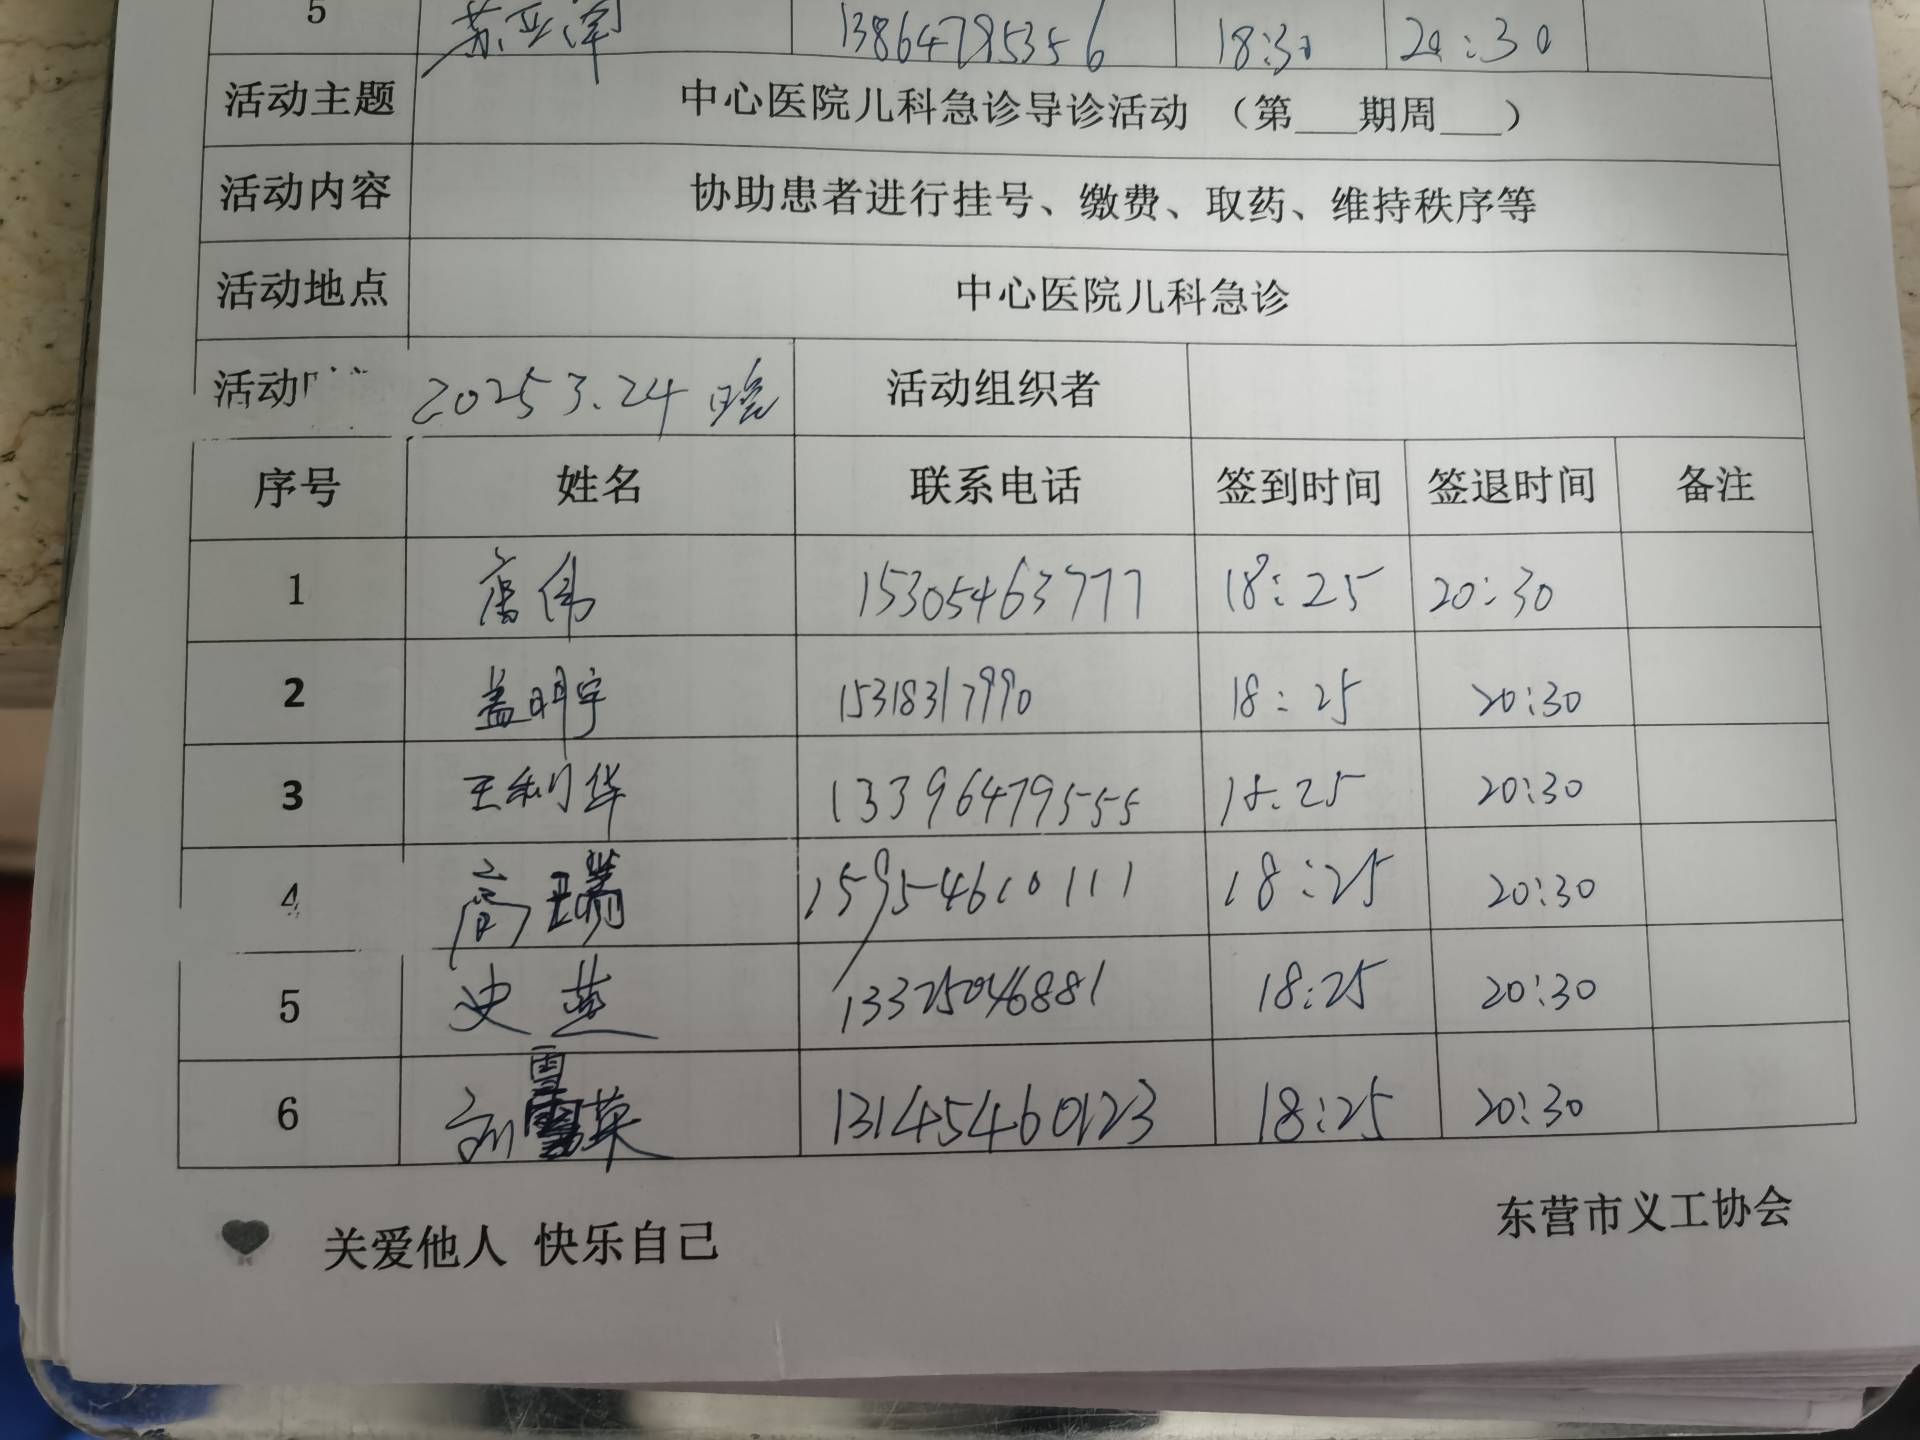 5 苏亚泽 13864795356 18:30 20:30
活动主题 中心医院儿科急诊导诊活动 （第___期周___）
活动内容 协助患者进行挂号、缴费、取药、维持秩序等
活动地点 中心医院儿科急诊
活动时间 2025 3.24 晚 活动组织者
序号 姓名 联系电话 签到时间 签退时间 备注
1 唐伟 15305463777 18:25 20:30
2 盖明宇 15318317990 18:25 20:30
3 王利华 13396479555 18:25 20:30
4 高瑞 15954610111 18:25 20:30
5 史燕 13325046881 18:25 20:30
6 刘雪英 13145460123 18:25 20:30
关爱他人 快乐自己
东营市义工协会